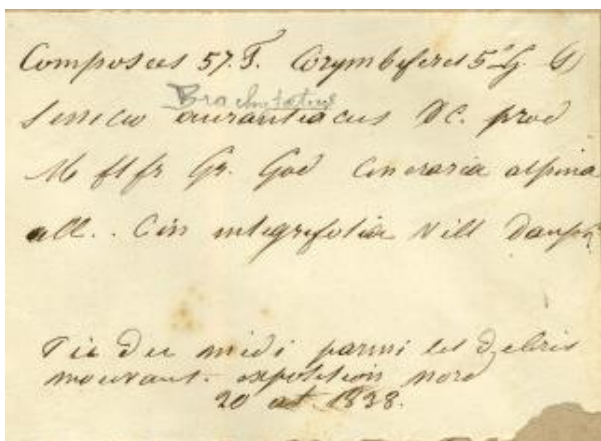 Composees 57. F. Corymbiferes 5e G. 6)
Brachytætus
Senecio aurantiacus DC. prod
16 fl fr Gr. God Cineraria alpina
all.. Cin integrifolia Vill Dauph
Pic du midi parmi les debris
mouvant. exposition nord
20 at. 1838.